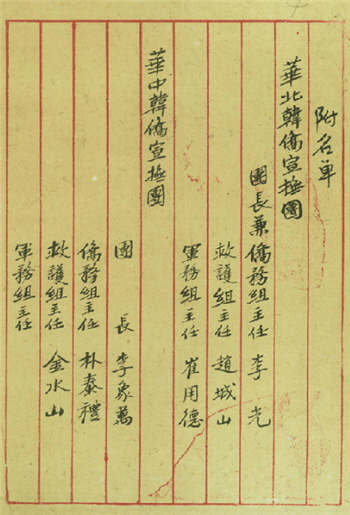 附名单
華北韓僑宣撫團
團長兼僑務組主任 李光
救護組主任 趙城山
軍務組主任 崔用德
華中韓僑宣撫團
團長 李象萬
僑務組主任 朴泰禮
救護組主任 金水山
軍務組主任